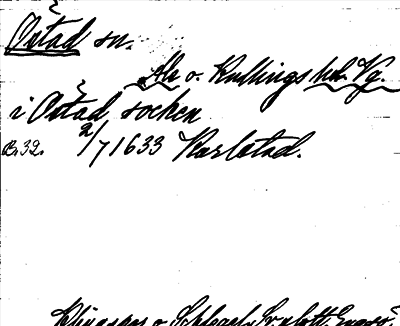 Östad sn.
Ale o. Kullings hd. Vg.
i Östad socken
B.32. 2/7 1633 Karlstad.
Klingspor o. Schlegel,